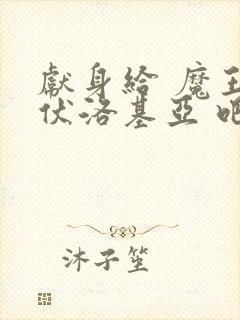 獻身給 魔王
伏洛基亞 吧
沐子笙